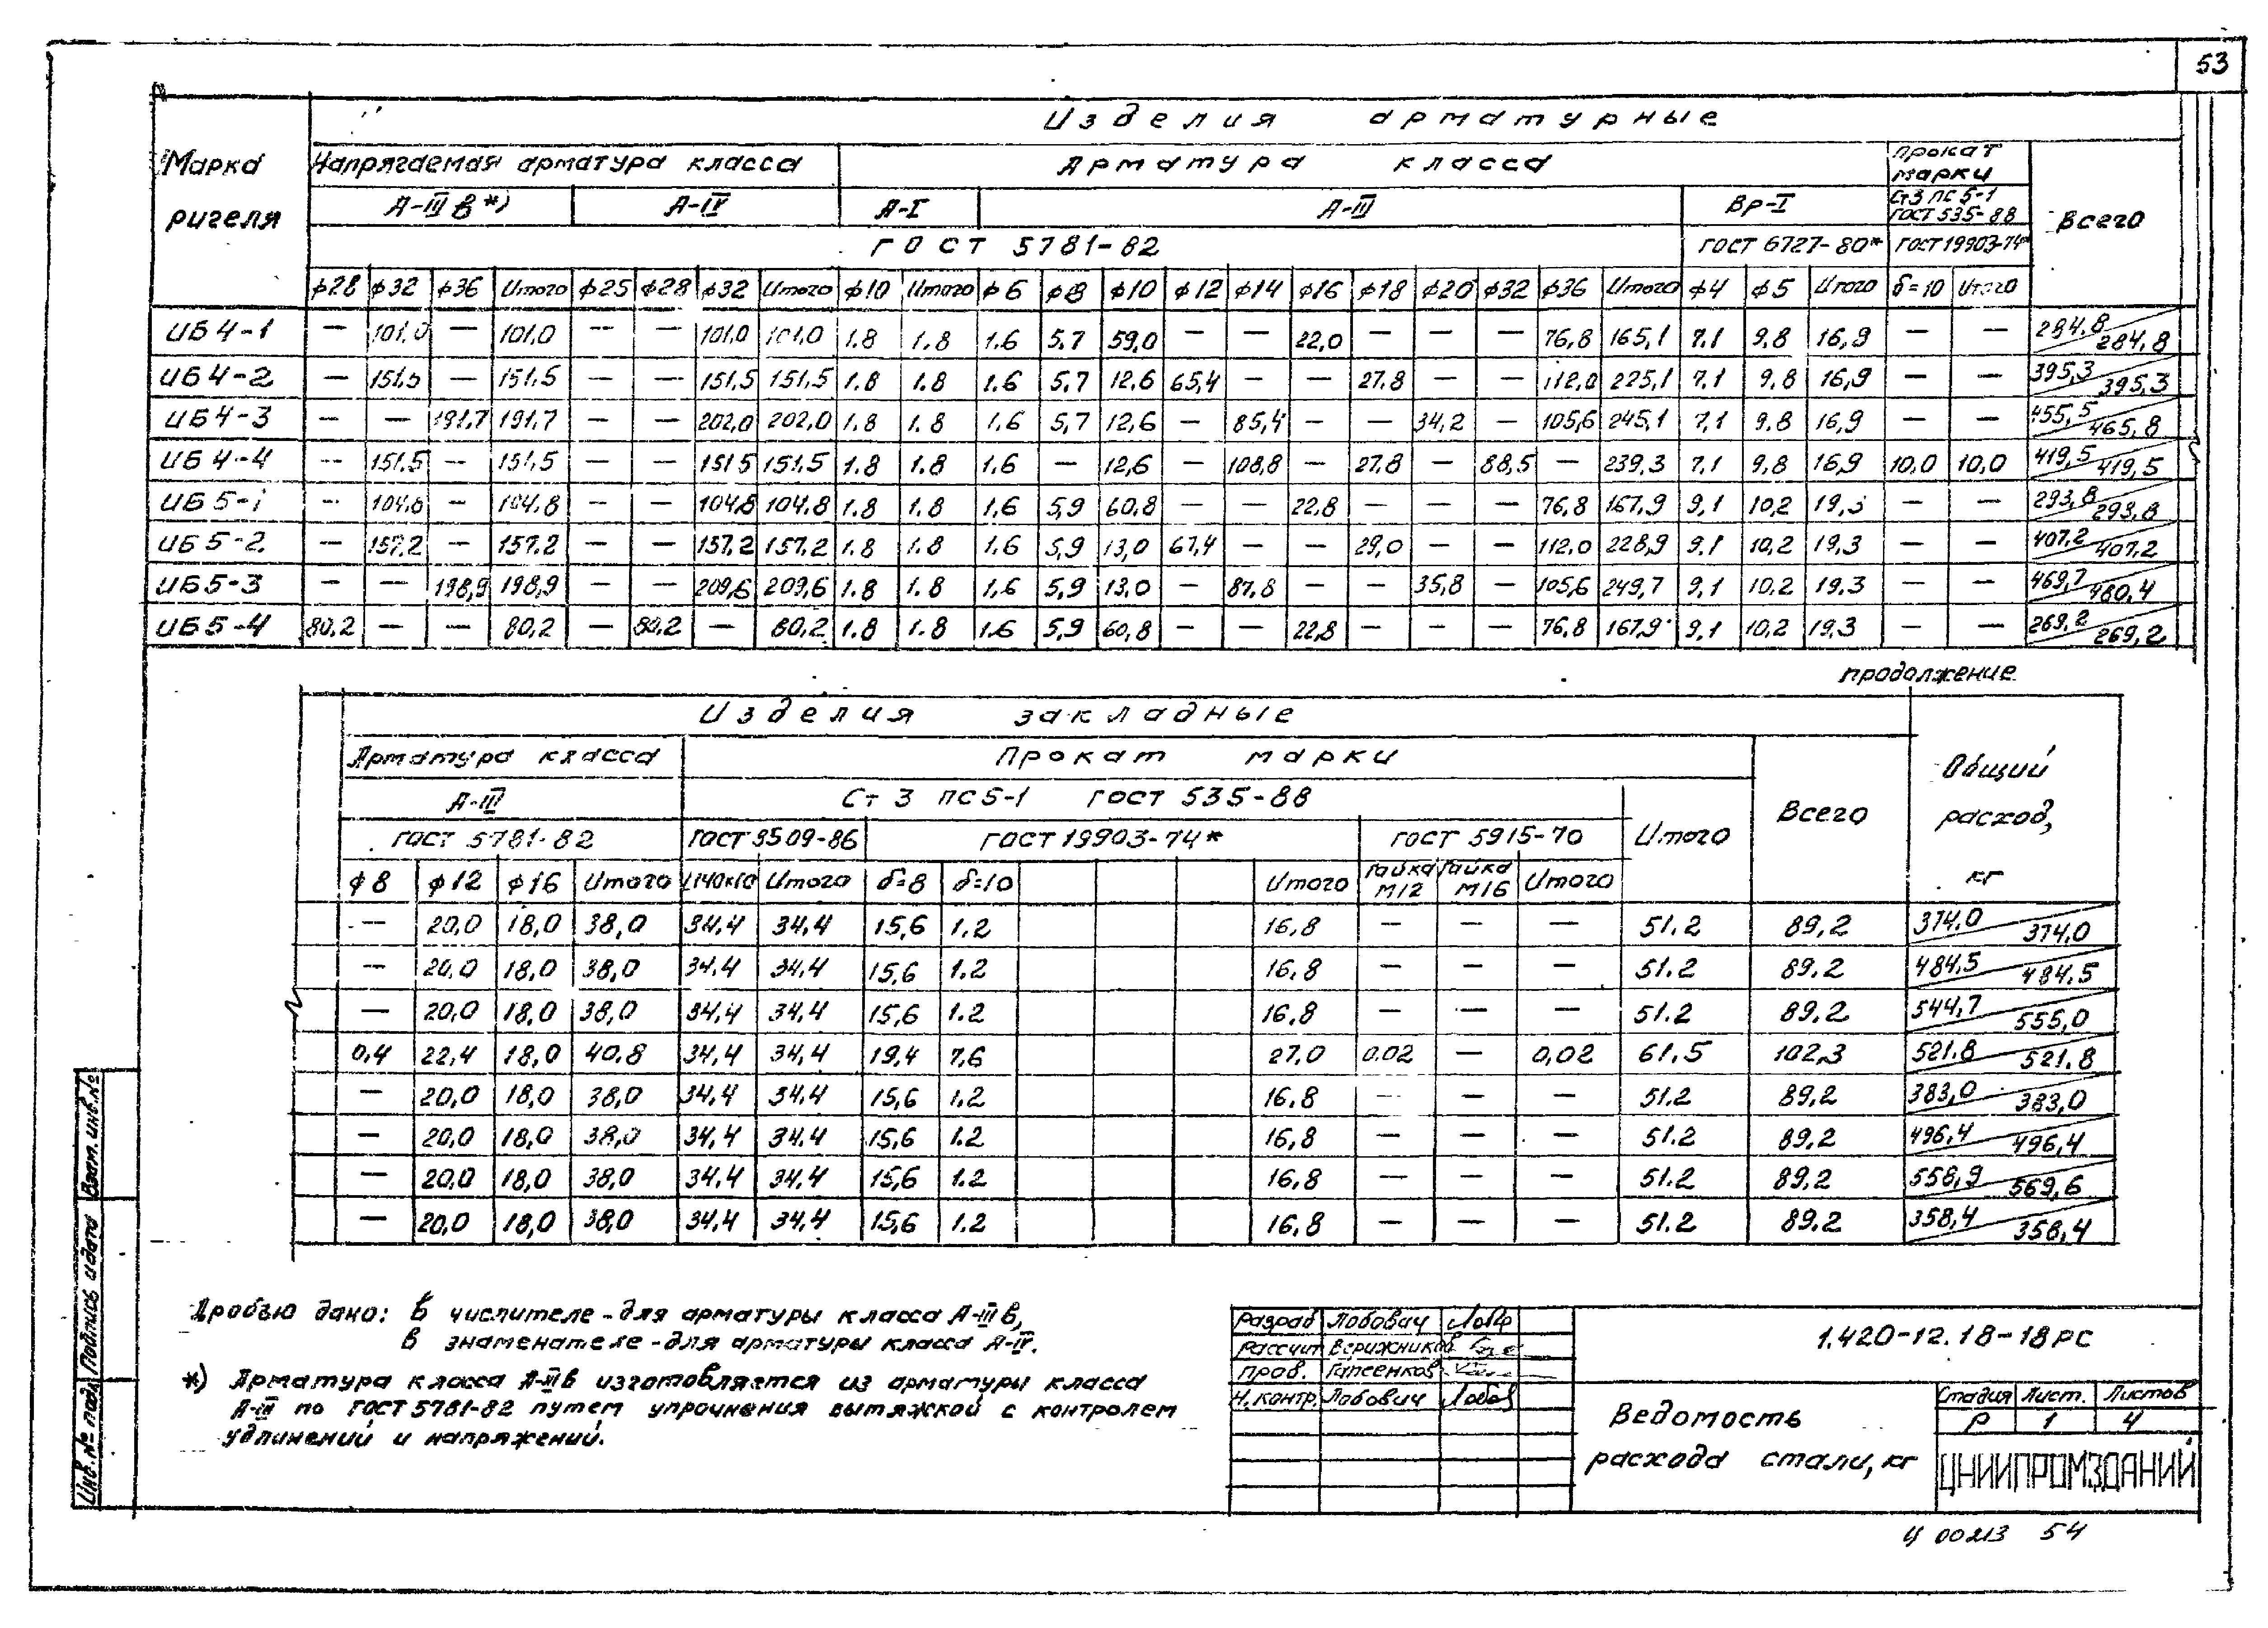 53
Изделия арматурные
Марка ригеля
Напрягаемая арматура класса
Арматура класса
Прокат марки
А-III в*)
А-IV
А-I
А-III
Вр-I
Ст3 пс 5-1
ГОСТ 535-88
Всего
ГОСТ 5781-82
ГОСТ 6727-80*
ГОСТ 19903-74*
ф28 ф32 ф36 Итого ф25 ф28 ф32 Итого ф10 Итого ф6 ф8 ф10 ф12 ф14 ф16 ф18 ф20 ф32 ф36 Итого ф4 ф5 Итого δ=10 Итого
ИБ4-1 — 101,0 — 101,0 — — 101,0 101,0 1.8 1.8 1.6 5.7 59,0 — — 22,0 — — — 76,8 165,1 7.1 9.8 16,9 — — 284.8 284,8
ИБ4-2 — 151.5 — 151.5 — — 151,5 151,5 1.8 1.8 1.6 5.7 12,6 65,4 — — 27.8 — — 112,0 225,1 7.1 9.8 16,9 — — 395,3 395,3
ИБ4-3 — — 191.7 191.7 — — 202,0 202,0 1.8 1.8 1.6 5,7 12,6 — 85,4 — — 34,2 — 105,6 245,1 7,1 9.8 16,9 — — 455,5 465,8
ИБ4-4 — 151.5 — 151,5 — — 151 5 151.5 1.8 1.8 1.6 — 12,6 — 108,8 — 27.8 — 88,5 — 239,3 7,1 9.8 16,9 10,0 10,0 419,5 419,5
ИБ5-1 — 104,8 — 104,8 — — 104,8 104,8 1.8 1.8 1.6 5,9 60,8 — — 22,8 — — — 76,8 167,9 9,1 10,2 19,3 — — 293,8 293,8
ИБ5-2 — 157,2 — 157.2 — — 157,2 157,2 1.8 1.8 1.6 5,9 13,0 67,4 — — 29,0 — — 112,0 228,9 9,1 10,2 19,3 — — 407,2 407,2
ИБ5-3 — — 198,9 198,9 — — 209,6 209,6 1.8 1.8 1.6 5,9 13,0 — 87,8 — — 35,8 — 105,6 249,7 9,1 10,2 19,3 — — 469,7 480,4
ИБ5-4 80,2 — — 80,2 — 80,2 — 80,2 1.8 1.8 1.6 5,9 60,8 — — 22,8 — — — 76,8 167,9 9,1 10,2 19,3 — — 269,2 269,2
продолжение
Изделия закладные
Арматура класса
Прокат марки
А-III
Ст 3 пс5-1 ГОСТ 535-88
Всего
Общий расход, кг
ГОСТ 5781-82
ГОСТ 8509-86
ГОСТ 19903-74*
ГОСТ 5915-70
Итого
ф8 ф12 ф16 Итого L140х10 Итого δ=8 δ=10 Итого Гайка М12 Гайка М16 Итого
— 20,0 18,0 38,0 34,4 34,4 15,6 1.2 16,8 — — — 51.2 89,2 374,0 374,0
— 20,0 18,0 38,0 34.4 34,4 15,6 1.2 16,8 — — — 51.2 89.2 484,5 484,5
— 20,0 18,0 38,0 34,4 34,4 15,6 1.2 16.8 — — — 51.2 89.2 544,7 555,0
0,4 22,4 18,0 40,8 34,4 34,4 19,4 7,6 27,0 0.02 — 0,02 61.5 102,3 521.8 521.8
— 20,0 18,0 38,0 34,4 34,4 15,6 1.2 16.8 — — — 51.2 89,2 383,0 383,0
— 20,0 18,0 38,0 34,4 34.4 15,6 1.2 16,8 — — — 51.2 89,2 496,4 496,4
— 20,0 18,0 38,0 34,4 34,4 15,6 1.2 16,8 — — — 51.2 89,2 558,9 569,6
— 20,0 18,0 38,0 34,4 34,4 15,6 1.2 16,8 — — — 51.2 89.2 358,4 358,4
Дробью дано: в числителе - для арматуры класса А-III в,
в знаменателе - для арматуры класса А-IV.
*) Арматура класса А-III в изготовляется из арматуры класса
А-III по ГОСТ 5781-82 путем упрочнения вытяжкой с контролем
удлинений и напряжений.
Разраб Лобович
Рассчит Верижников
Пров. Гапеенков
Н.контр. Лобович
1.420-12.18-18РС
Ведомость
расхода стали, кг
Стадия Лист. Листов
Р 1 4
ЦНИИПРОМЗДАНИЙ
Ц 00213 54
Взам. инв.№
Подпись и дата
Инв.№ подл